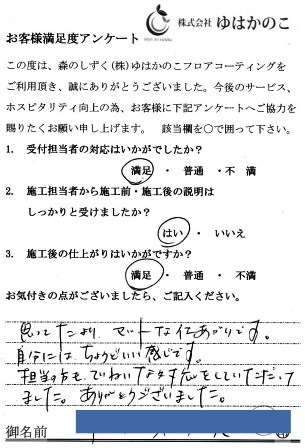 株式会社 ゆはかのこ
お客様満足度アンケート
この度は、森のしずく(株)ゆはかのこフロアコーティングを
ご利用頂き、誠にありがとうございました。今後のサービス、
ホスピタリティ向上の為、お客様に下記アンケートへご協力を
賜りたくお願い申し上げます。 該当欄を○で囲って下さい。
1. 受付担当者の対応はいかがでしたか?
満足 ・ 普通 ・ 不 満
2. 施工担当者から施工前・施工後の説明は
しっかりと受けましたか?
はい ・ いいえ
3. 施工後の仕上がりはいかがですか?
満足 ・ 普通 ・ 不満
お気付きの点がございましたら、ご記入ください。
思ってたより、マットな仕あがりです。
自分にはちょうどいい感じです。
担当の方も、ていねいな対応をしていただい
てました。ありがとうございました。
御名前